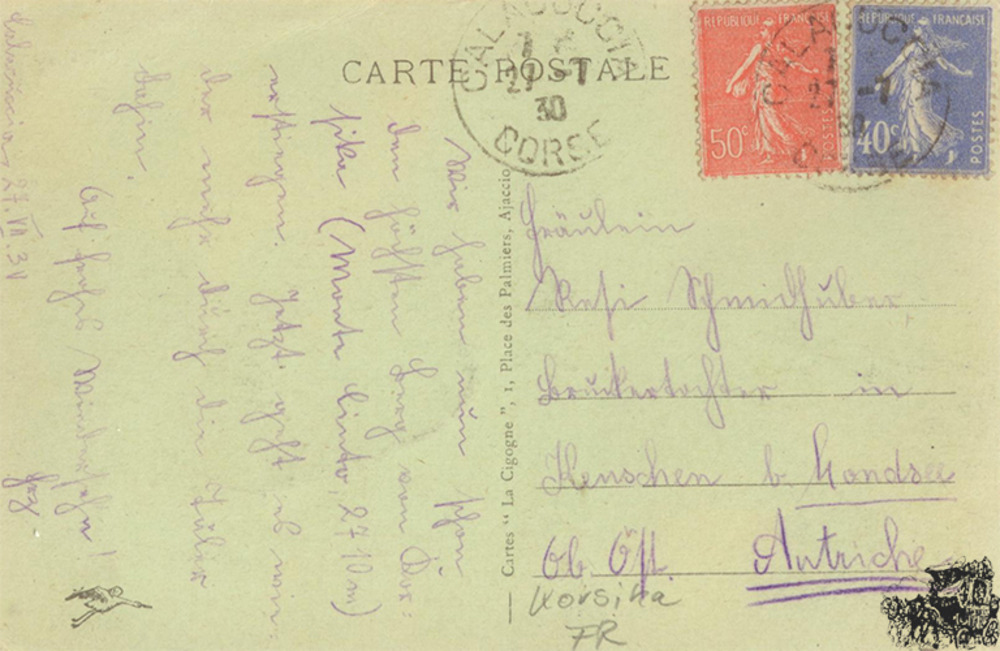 CARTE POSTALE
CALACUCCIA
27 -7
30
CORSE
REPUBLIQUE FRANÇAISE
50c
POSTES
REPUBLIQUE FRANÇAISE
40c
POSTES
Wir haben nun schon
den höchsten Berg von Kor-
sika (Monte Cinto, 2710 m)
erstiegen. Jetzt geht es wie-
der mehr durch die Täler
dahin.
Auf frohes Wiedersehn!
27.VII.
Cartes “ La Cigogne ”, 1, Place des Palmiers, Ajaccio
Fräulein
Resi Schmidhuber
in
b. Mondsee
Ob. Öst. Autriche
Korsika
FR